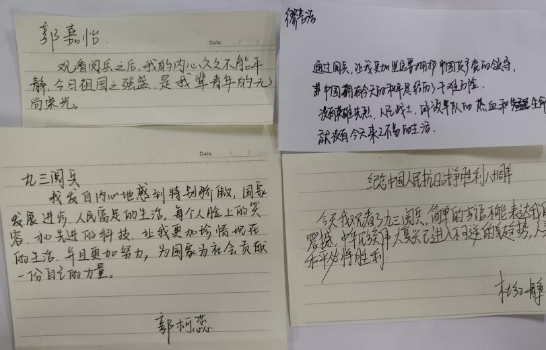 郭嘉怡
观看阅兵之后，我的内心久久不能平
静，今日祖国之强盛，是我辈青年的无
尚荣光。
通过阅兵，让我更加坚定拥护中国共产党的领导，
没有英雄先烈，人民战士，
就没有今天来之不易的生活。
九三阅兵
我发自内心地感到特别骄傲，国家
发展进步，人民富足的生活，每个人脸上的笑
容，和先进的科技，让我更加珍惜现在
的生活，并且更加努力，为国家为社会贡献
一份自己的力量。
郭柯恋
纪念中国人民抗日战争胜利八十周年
今天我观看了九三阅兵，简单的言语不能表达我的
震撼，中华民族伟大复兴已进入不可逆的
和平必将胜利